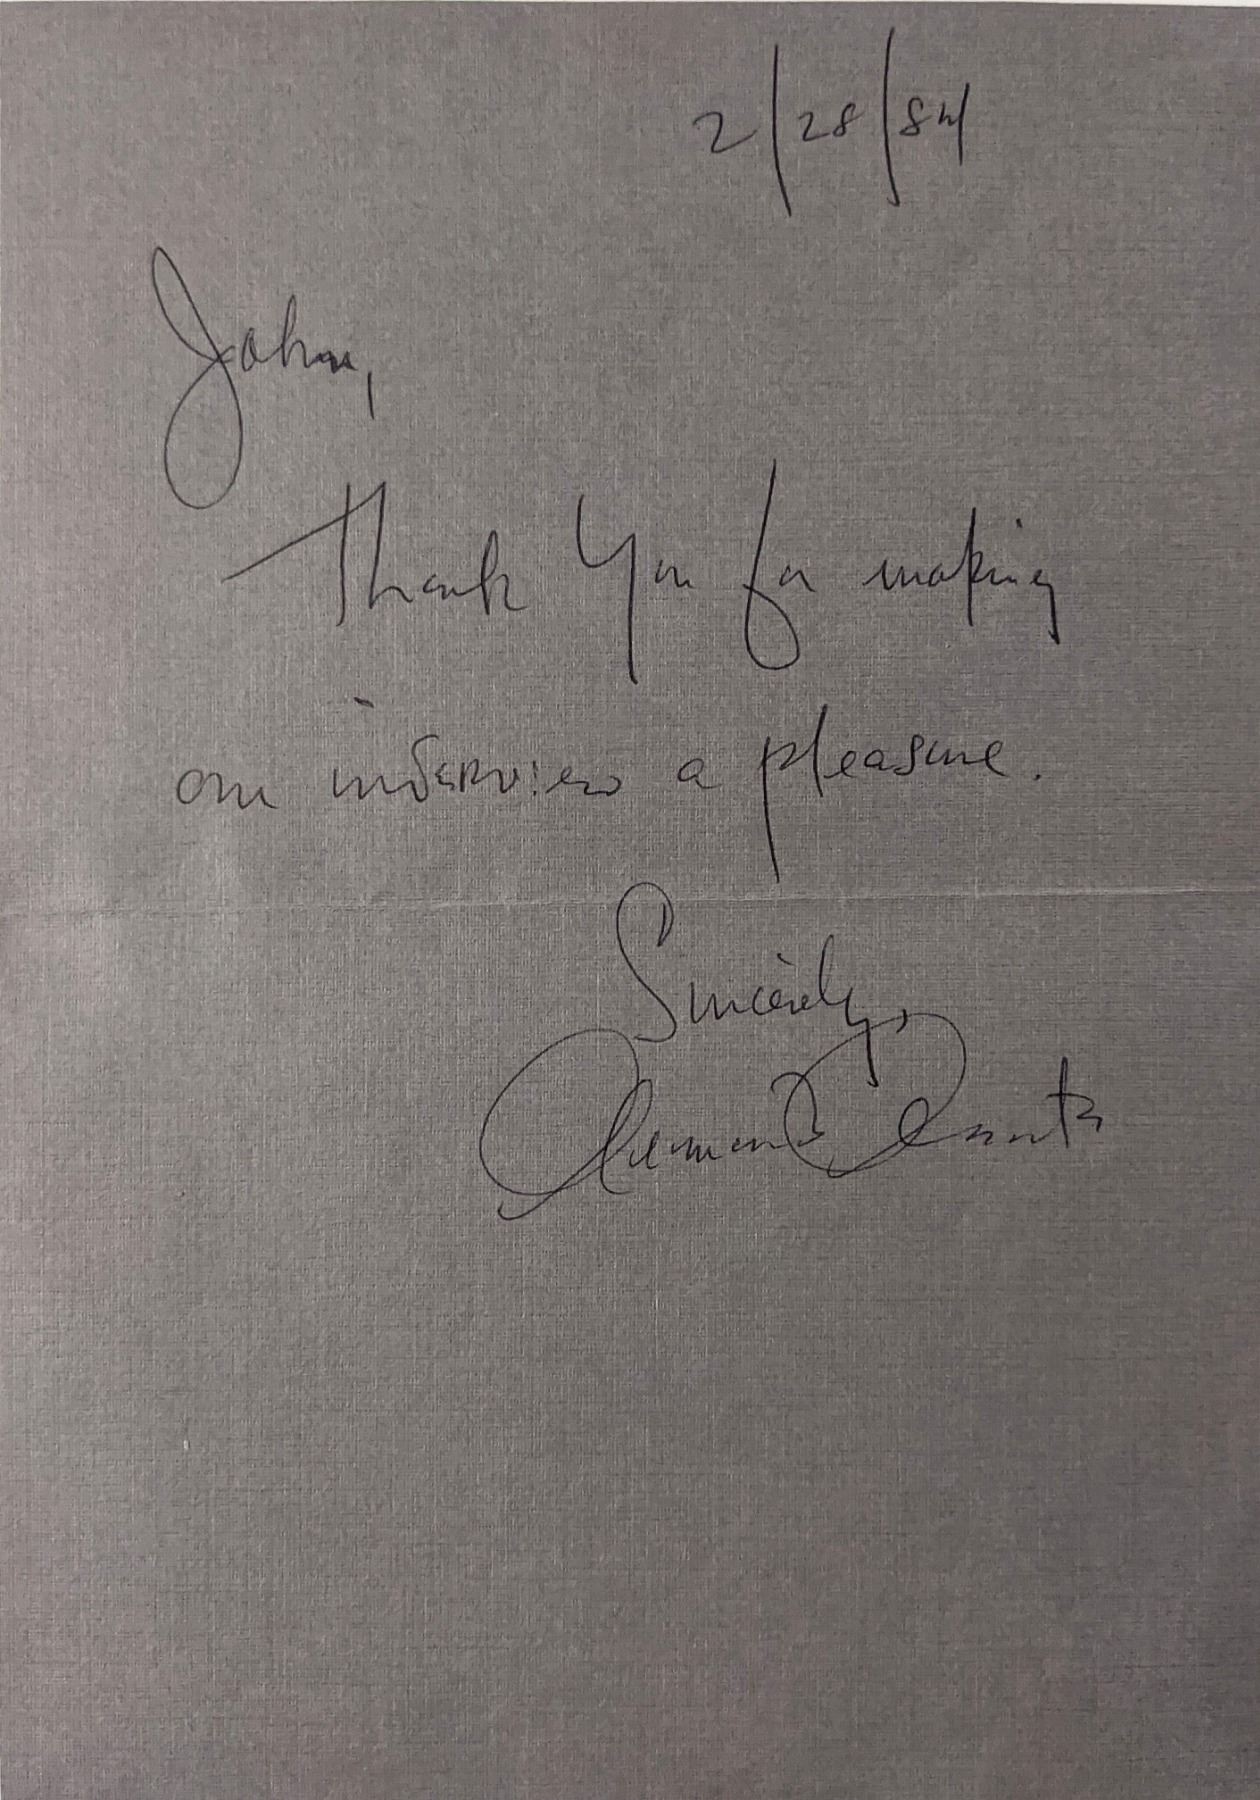 2/28/84
John,
Thank You for making
our interview a pleasure.
Sincerely,